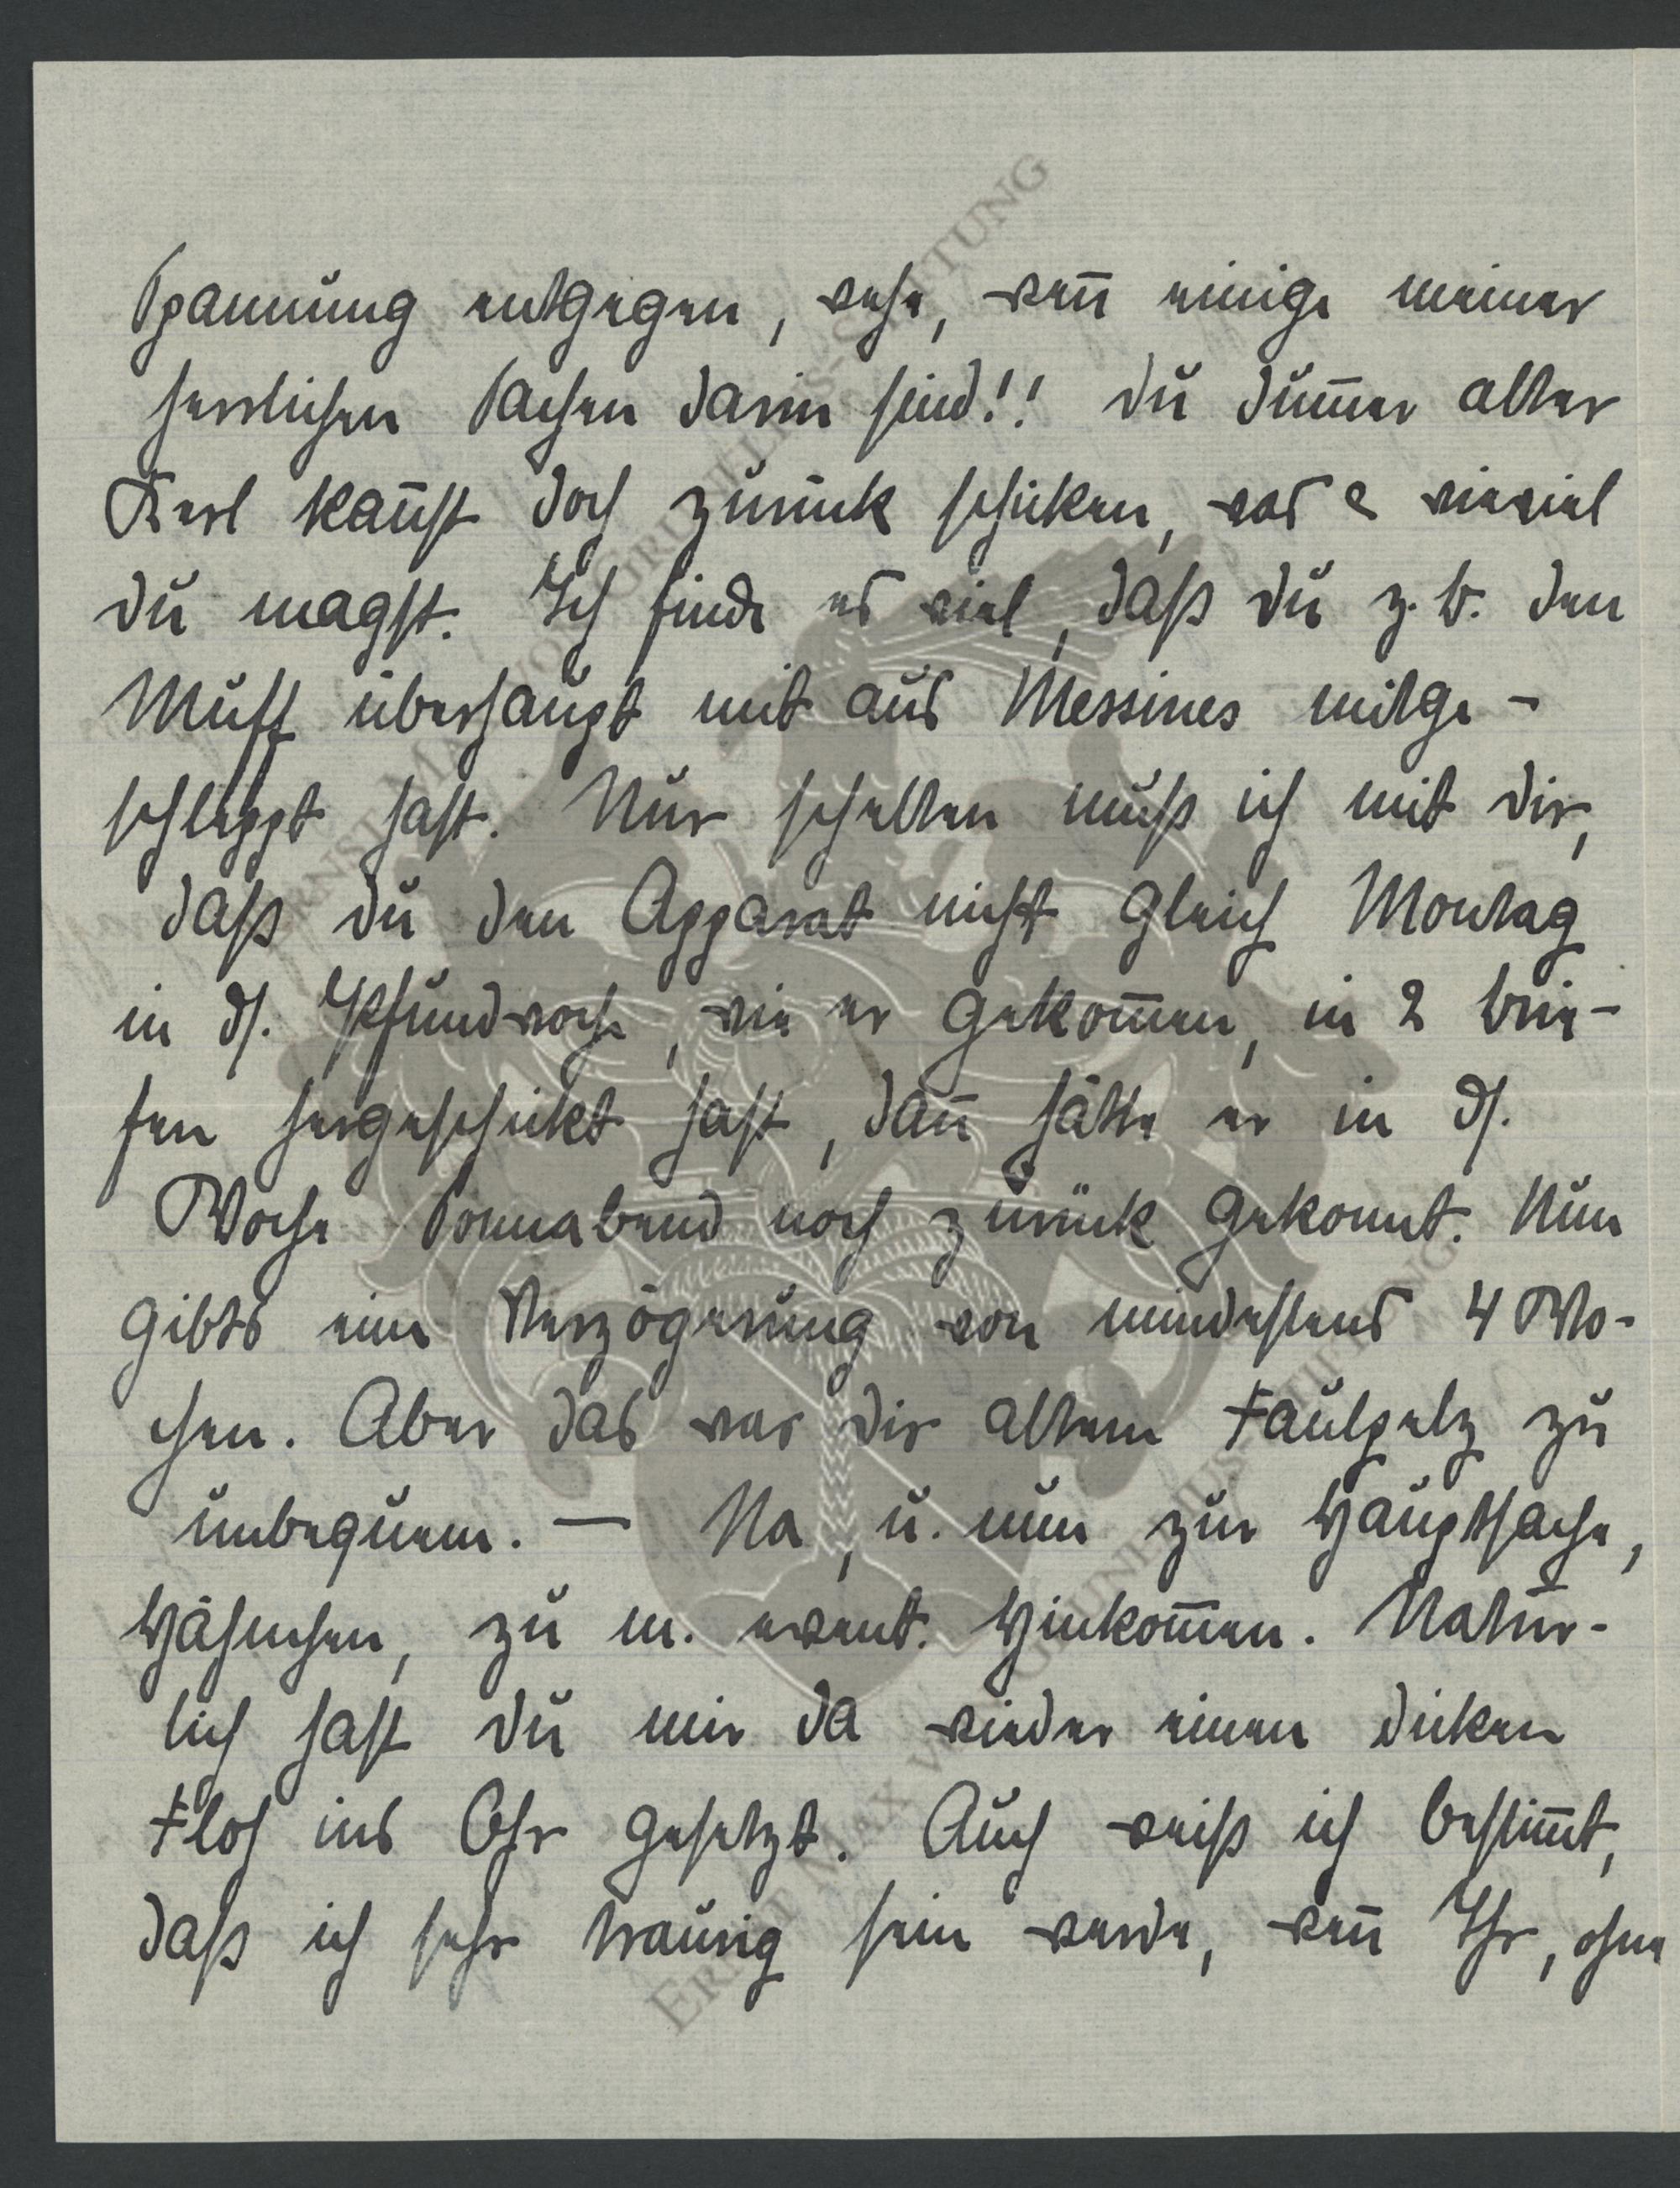 Spannung entgegen, wehe, weñ einige meiner
herrlichen Sachen darin sind!! Du dum̄er alter
Kerl kan̄st doch zurück schicken, was & wieviel
du magst. Ich finde es viel, daß du z. B. den
Muff überhaupt mit aus Messines mitge-
schleppt hast. Nur schelten muß ich mit dir,
daß du den Apparat nicht gleich Montag
in ds. Pfundwoche, wie er gekom̄en, in 2 Brie-
fen hergeschickt hast, dan̄ hätte er in ds.
Woche Sonnabend noch zurück gekonnt. Nun
gibts eine Verzögerung von mindestens 4 Wo-
chen. Aber das war dir altem Faulpelz zu
unbequem. — Na, u. nun zur Hauptsache,
Hähnchen, zu m. event. Hinkom̄en. Natür-
lich hast du mir da wieder einen dicken
Floh ins Ohr gesetzt. Auch weiß ich bestim̄t,
daß ich sehr traurig sein werde, wen̄ Ihr, ohne
ERNST MAX VON GRUNELIUS-STIFTUNG
ERNST MAX VON GRUNELIUS-STIFTUNG